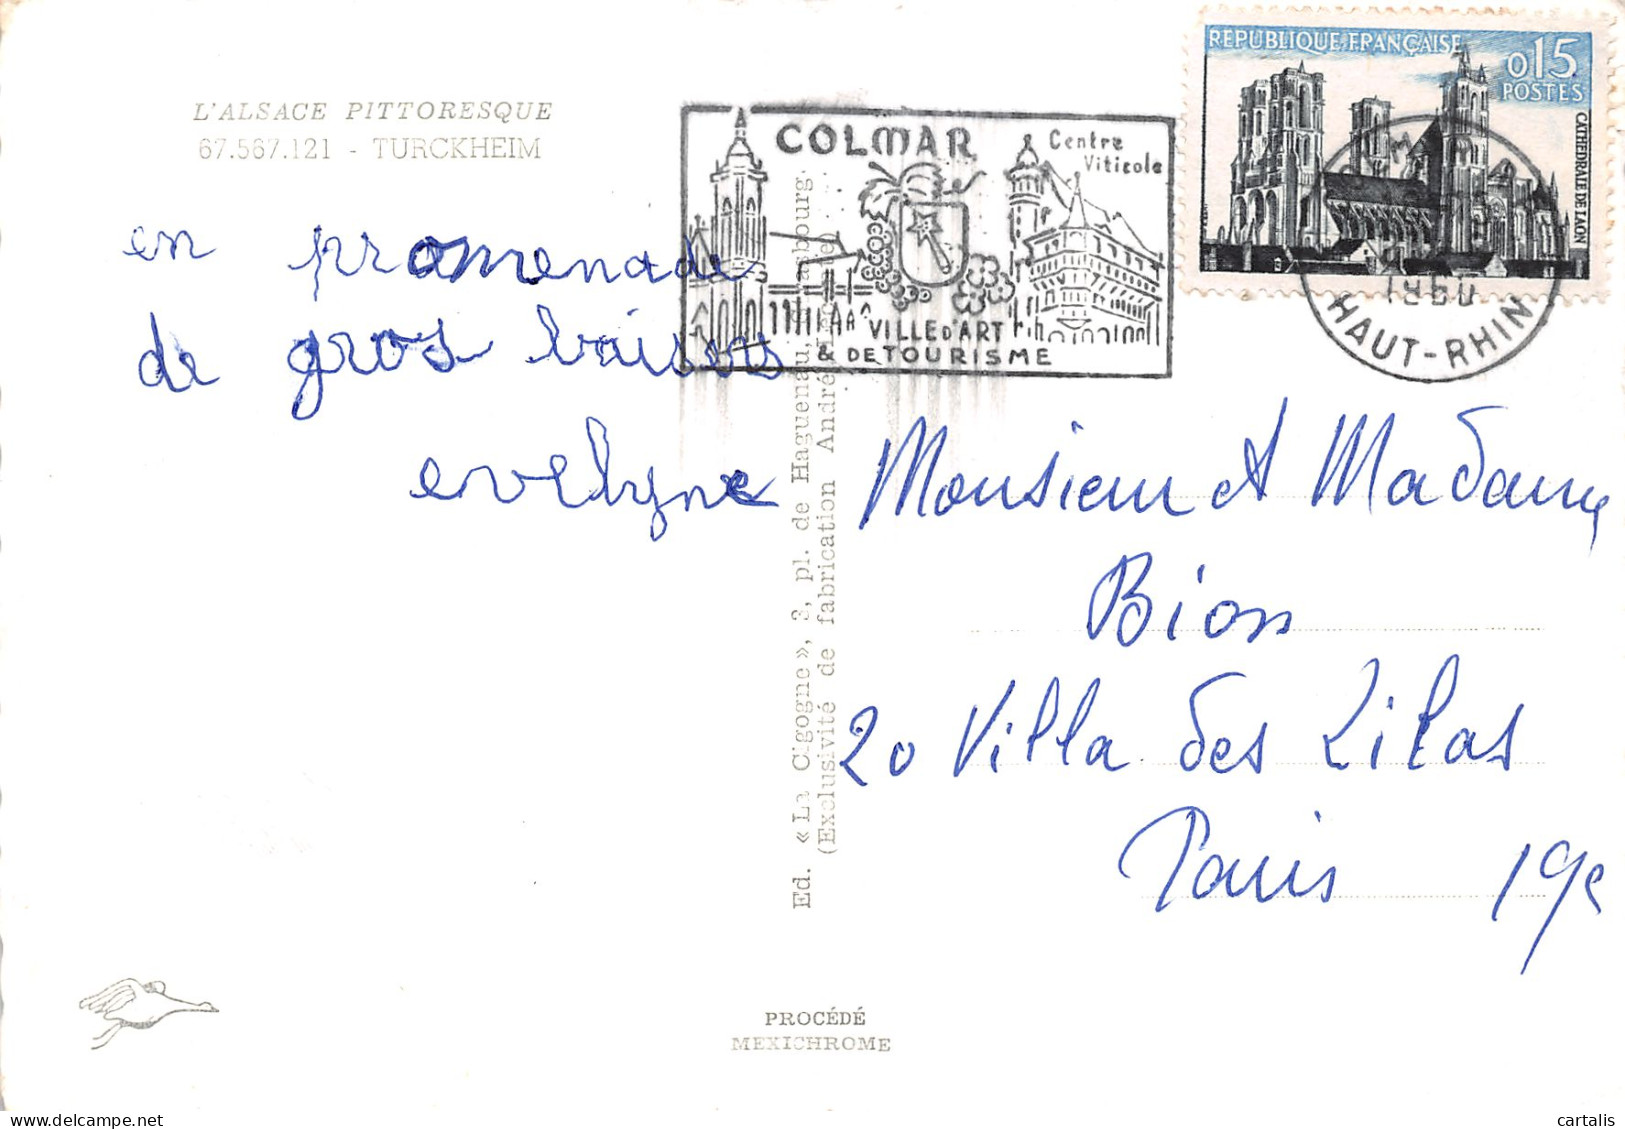 L'ALSACE PITTORESQUE
67.567.121 - TURCKHEIM
en promenade
de gros baisers
evelyne
COLMAR
Centre
Viticole
VILLE D'ART
& DE TOURISME
REPUBLIQUE FRANÇAISE
0,15
POSTES
CATHEDRALE DE LAON
1960
HAUT-RHIN
Ed. « La Cigogne », 3, pl. de Haguenau, Strasbourg.
(Exclusivité de fabrication André
Monsieur et Madame
Bion
20 Villa des Lilas
Paris 19e
PROCÉDÉ
MEXICHROME
cartalis